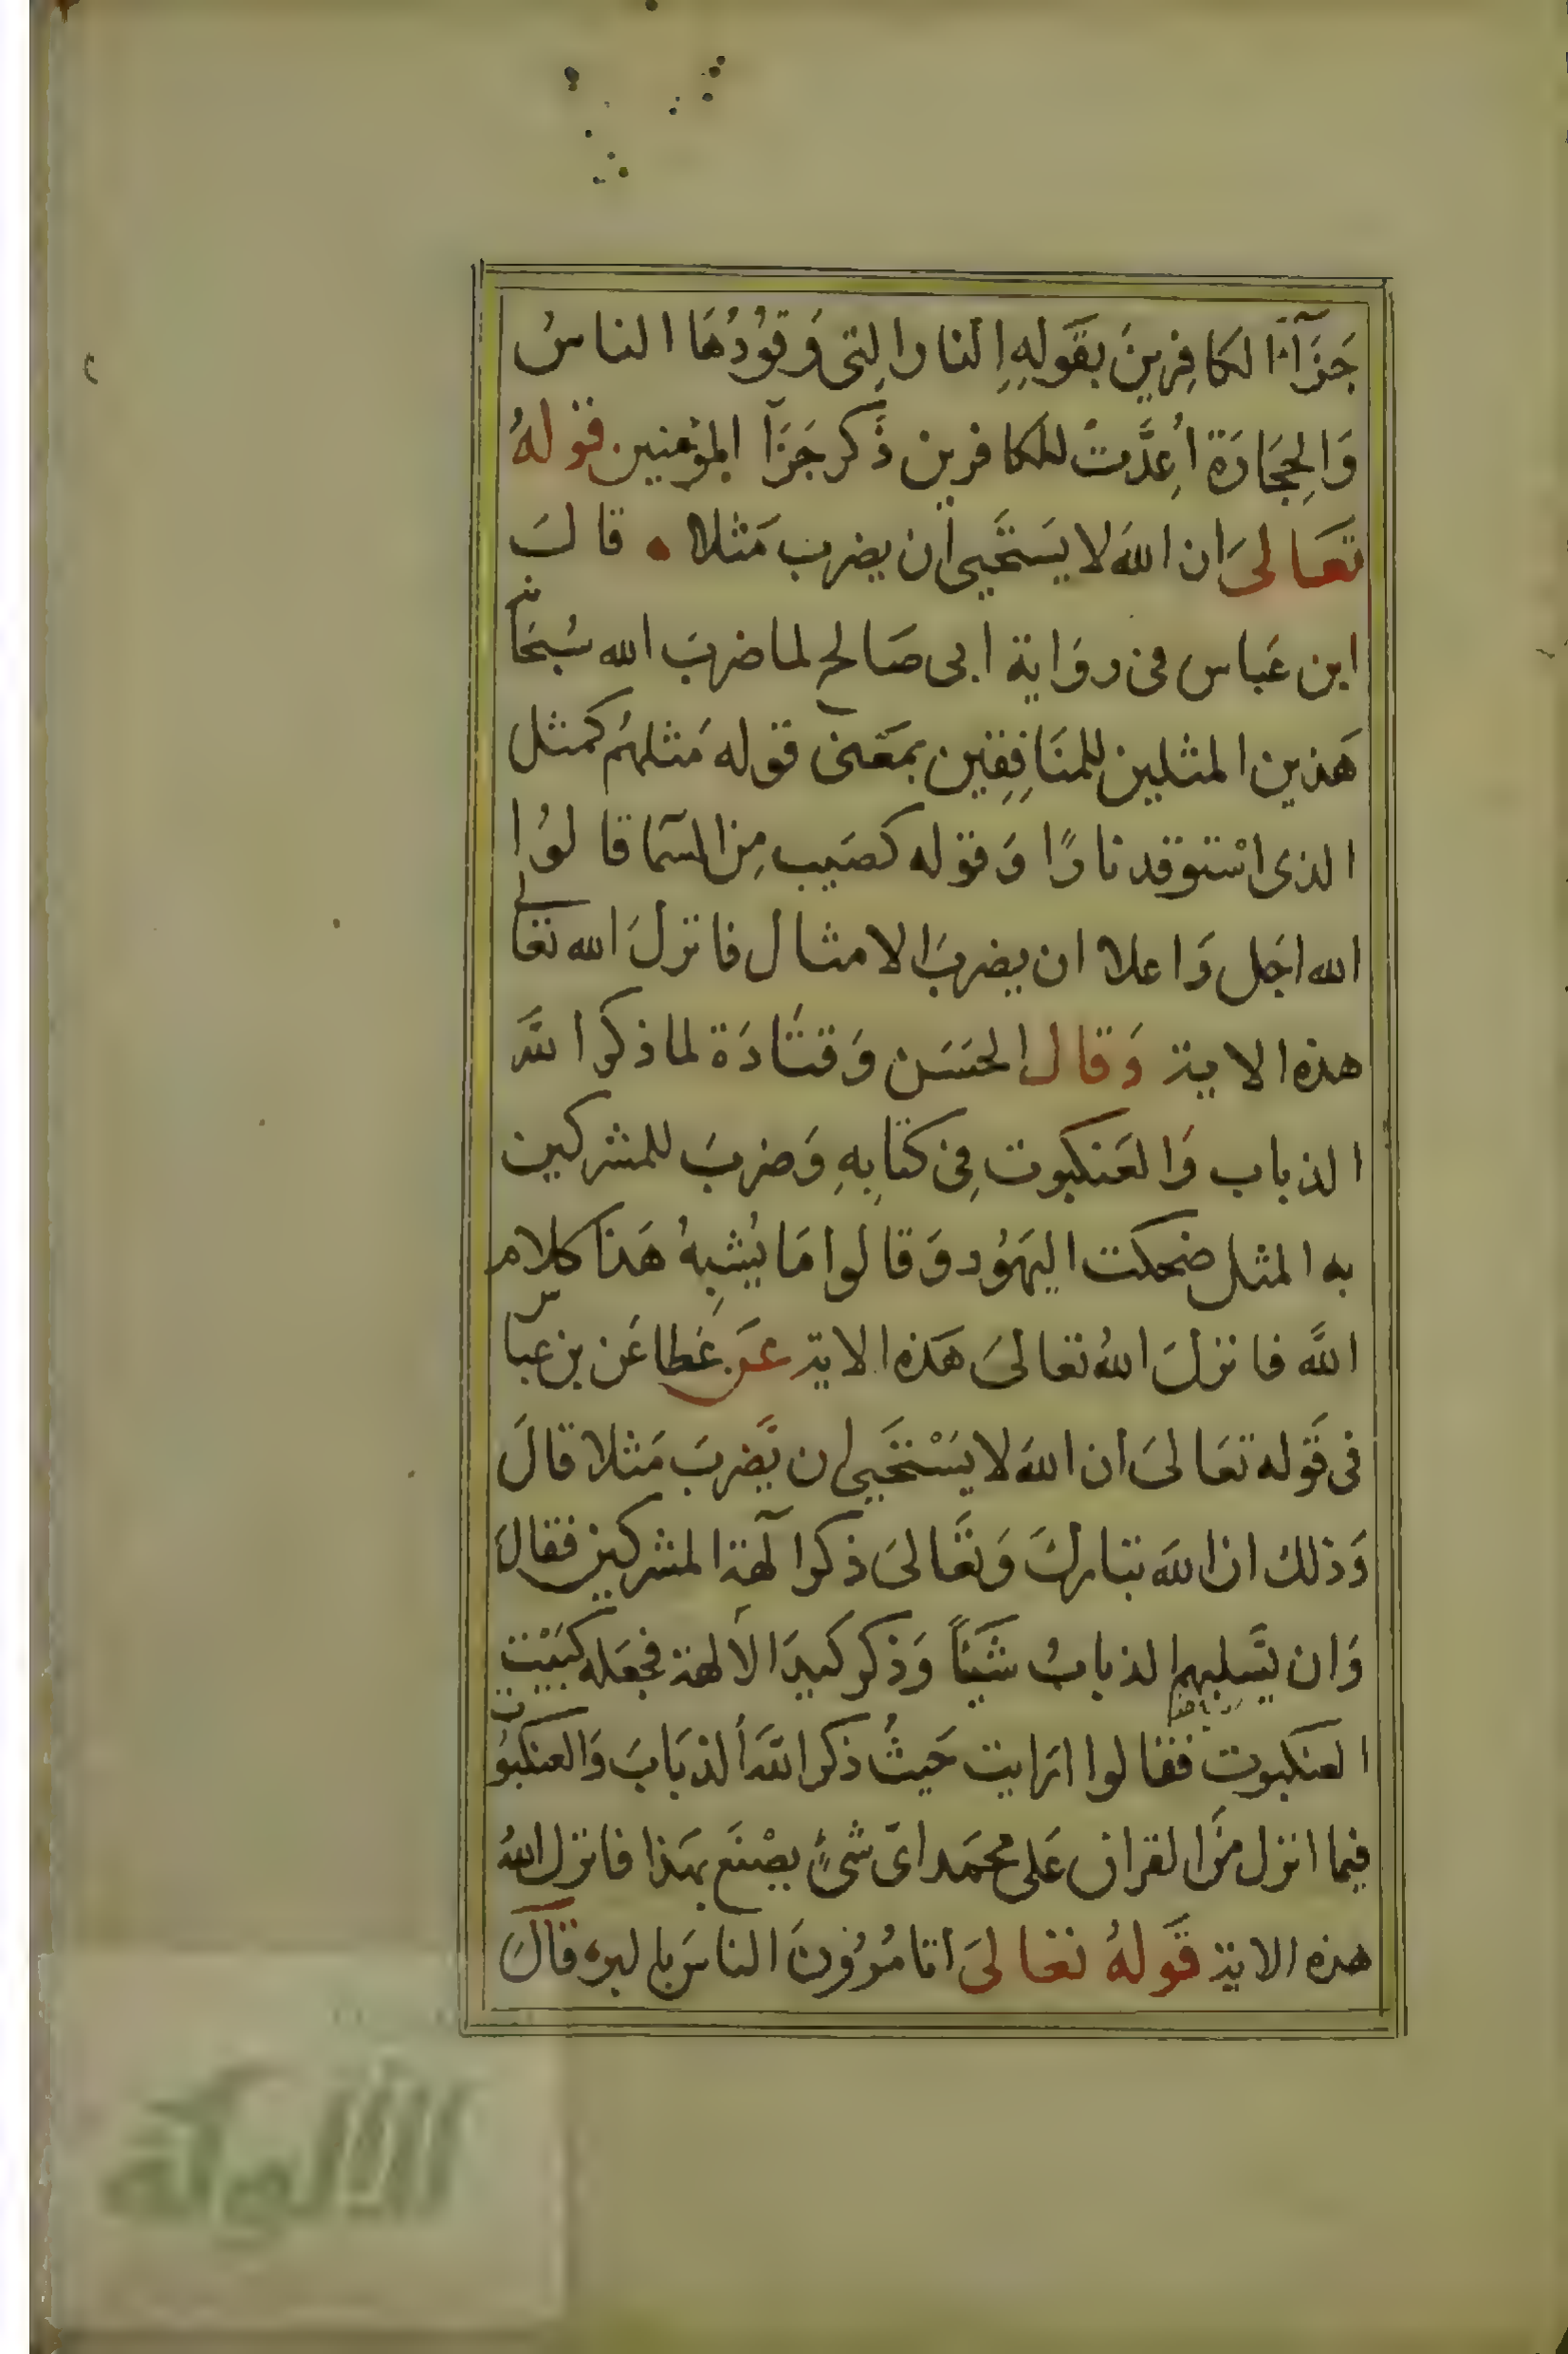 جَزَآءَ الكافِرينَ بقَولِهِ النار التى وَقوُدُهَا الناسُ
وَالحِجَارَة أُعِدَّتْ للكافرين ذَكر جَزَآ المؤمنين قولهُ
تعَالىَ ان اللهَ لا يَستَحيى أن يضرب مَثلا ٠ قالَ
ابن عَباس فى روَاية ابى صَالح لما ضربَ الله سُبحَانه
هَذين المثلين للمنَافِقين بمَعنى قوله مَثلهُم كمثل
الذى اسْتوقد نارًا وَقوله كصَيب مِن السَما قالوُا
الله اجَل وَاعلا ان يضربَ الامثال فانزلَ الله تعالى
هذه الاية وَقال الحسَسَن وَقتَادَة لما ذكر اللَّه
الذباب وَالعَنكبوت فِى كتابِهِ وَضربَ للمشركين
به المثل ضحكت اليهَوُد وَقالوا مَا يُشبِهُ هَذا كلام
اللَّه فانزلَ اللهُ تعالىَ هَذه الاية عَن عَطا عَن بن عبّاس
فى قَوله تعَالىَ ان اللهَ لا يَسْتَحَيى ان يَّضربَ مَثلا قالَ
وَذلك ان اللهَ تبَارك وَتعَالىَ ذكر آلِهة المشركين فقالَ
وَان يَّسلِبهم الذبابُ شَيئاً وَذكر كيدَ الالهة فجعَله كبَيْت
العنكبوت فقالوا ارَايت حَيثُ ذكر اللهَ الذبَابَ وَالعنكبوُت
فيما انزل مِنَ القران عَلى محمَد اىّ شىءٍ يصْنَع بهَذا فانزل اللهُ
هذه الاية قَولهُ تعَالىَ اتامُرُوُنَ الناسَ بالبره قالَ
الألوكة